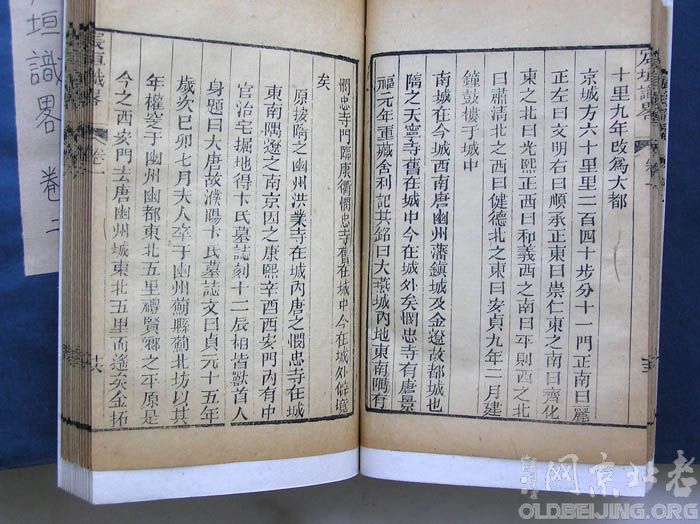 十里九年改為大都
京城方六十里里二百四十步分十一門正南曰麗
正左曰文明右曰順承正東曰崇仁東之南曰齊化
東之北曰光熙正西曰和義西之南曰平則西之北
曰肅清北之西曰健德北之東曰安貞九年二月建
鐘鼓樓于城中
南城在今城西南唐幽州藩鎮城及金遼故都城也
隋之天寧寺舊在城中今在城外矣憫忠寺有唐景
福元年重藏舍利記其銘曰大燕城內地東南隅有
憫忠寺門臨康衢憫忠寺舊在城中今在城外僻境
矣
原按隋之幽州洪業寺在城內唐之憫忠寺在城
東南隅遼之南京因之康熙辛酉西安門內有中
官治宅掘地得卞氏墓誌刻十二辰相皆獸首人
身題曰大唐故濮陽卞氏墓誌文曰貞元十五年
歲次己卯七月夫人卒于幽州薊縣薊北坊以其
年權窆于幽州幽都東北五里禮賢鄉之平原是
今之西安門去唐幽州城東北五里而遙矣金拓
宸垣識畧 卷一
十六
垣識畧 卷二
网京北老
OLDBEIJING.ORG